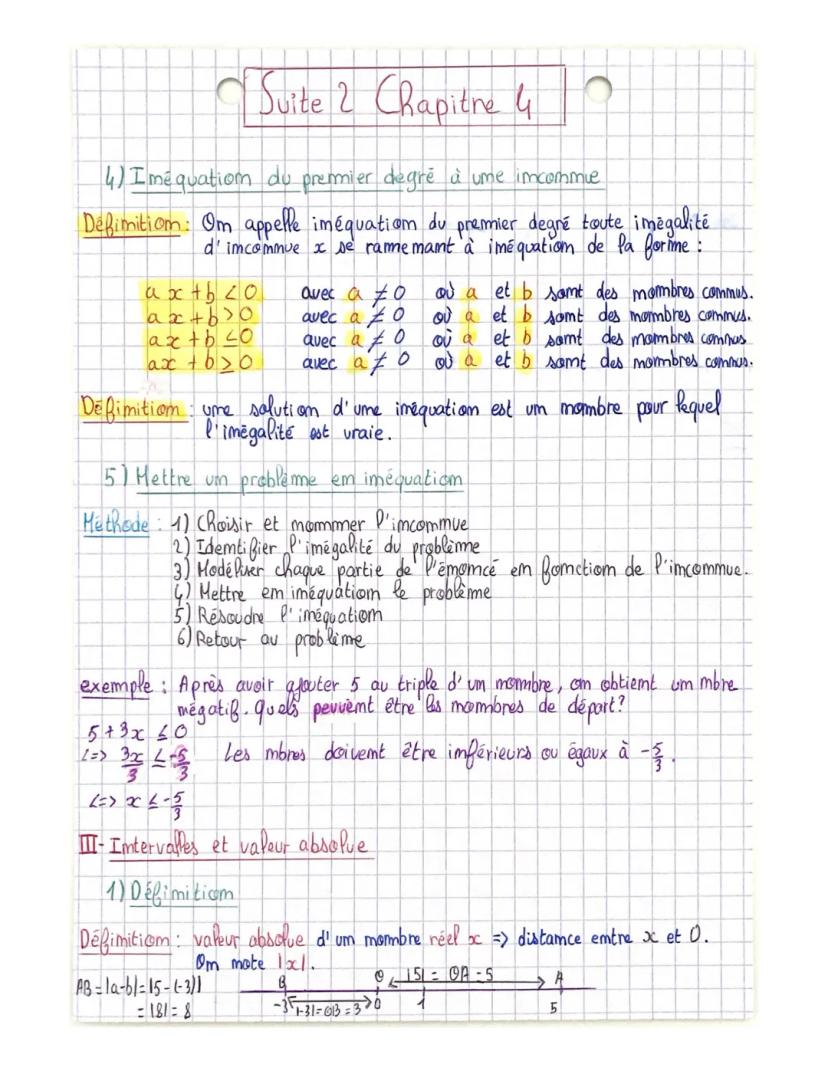 Suite 2 Chapitre 4
4) Inéquation du premier degré à une inconnue
Définition : On appelle inéquation du premier degré toute inégalité
d'inconnue x se ramenant à inéquation de la forme :
ax + b < 0 avec a ≠ 0 où a et b sont des nombres connus.
ax + b > 0 avec a ≠ 0 où a et b sont des nombres connus.
ax + b ≤ 0 avec a ≠ 0 où a et b sont des nombres connus
ax + b ≥ 0 avec a ≠ 0 où a et b sont des nombres connus.
Définition : une solution d'une inéquation est un nombre pour lequel
l'inégalité est vraie.
5) Mettre un problème en inéquation
Méthode : 1) Choisir et nommer l'inconnue
2) Identifier l'inégalité du problème
3) Modéliser chaque partie de l'énoncé en fonction de l'inconnue.
4) Mettre en inéquation le problème
5) Résoudre l'inéquation
6) Retour au problème
exemple : Après avoir ajouter 5 au triple d'un nombre, on obtient un nbre
négatif. Quels peuvent être les nombres de départ ?
5 + 3x ≤ 0
<=> 3x/3 ≤ -5/3 Les nbres doivent être inférieurs ou égaux à -5/3.
<=> x ≤ -5/3
III- Intervalles et valeur absolue
1) Définition
Définition : valeur absolue d'un nombre réel x => distance entre x et 0.
On note |x|.
AB = |a-b| = |5 - (-3)|
= |8| = 8
B O |5| = OA = 5 A
-3 |-3| = OB = 3 0 1 5